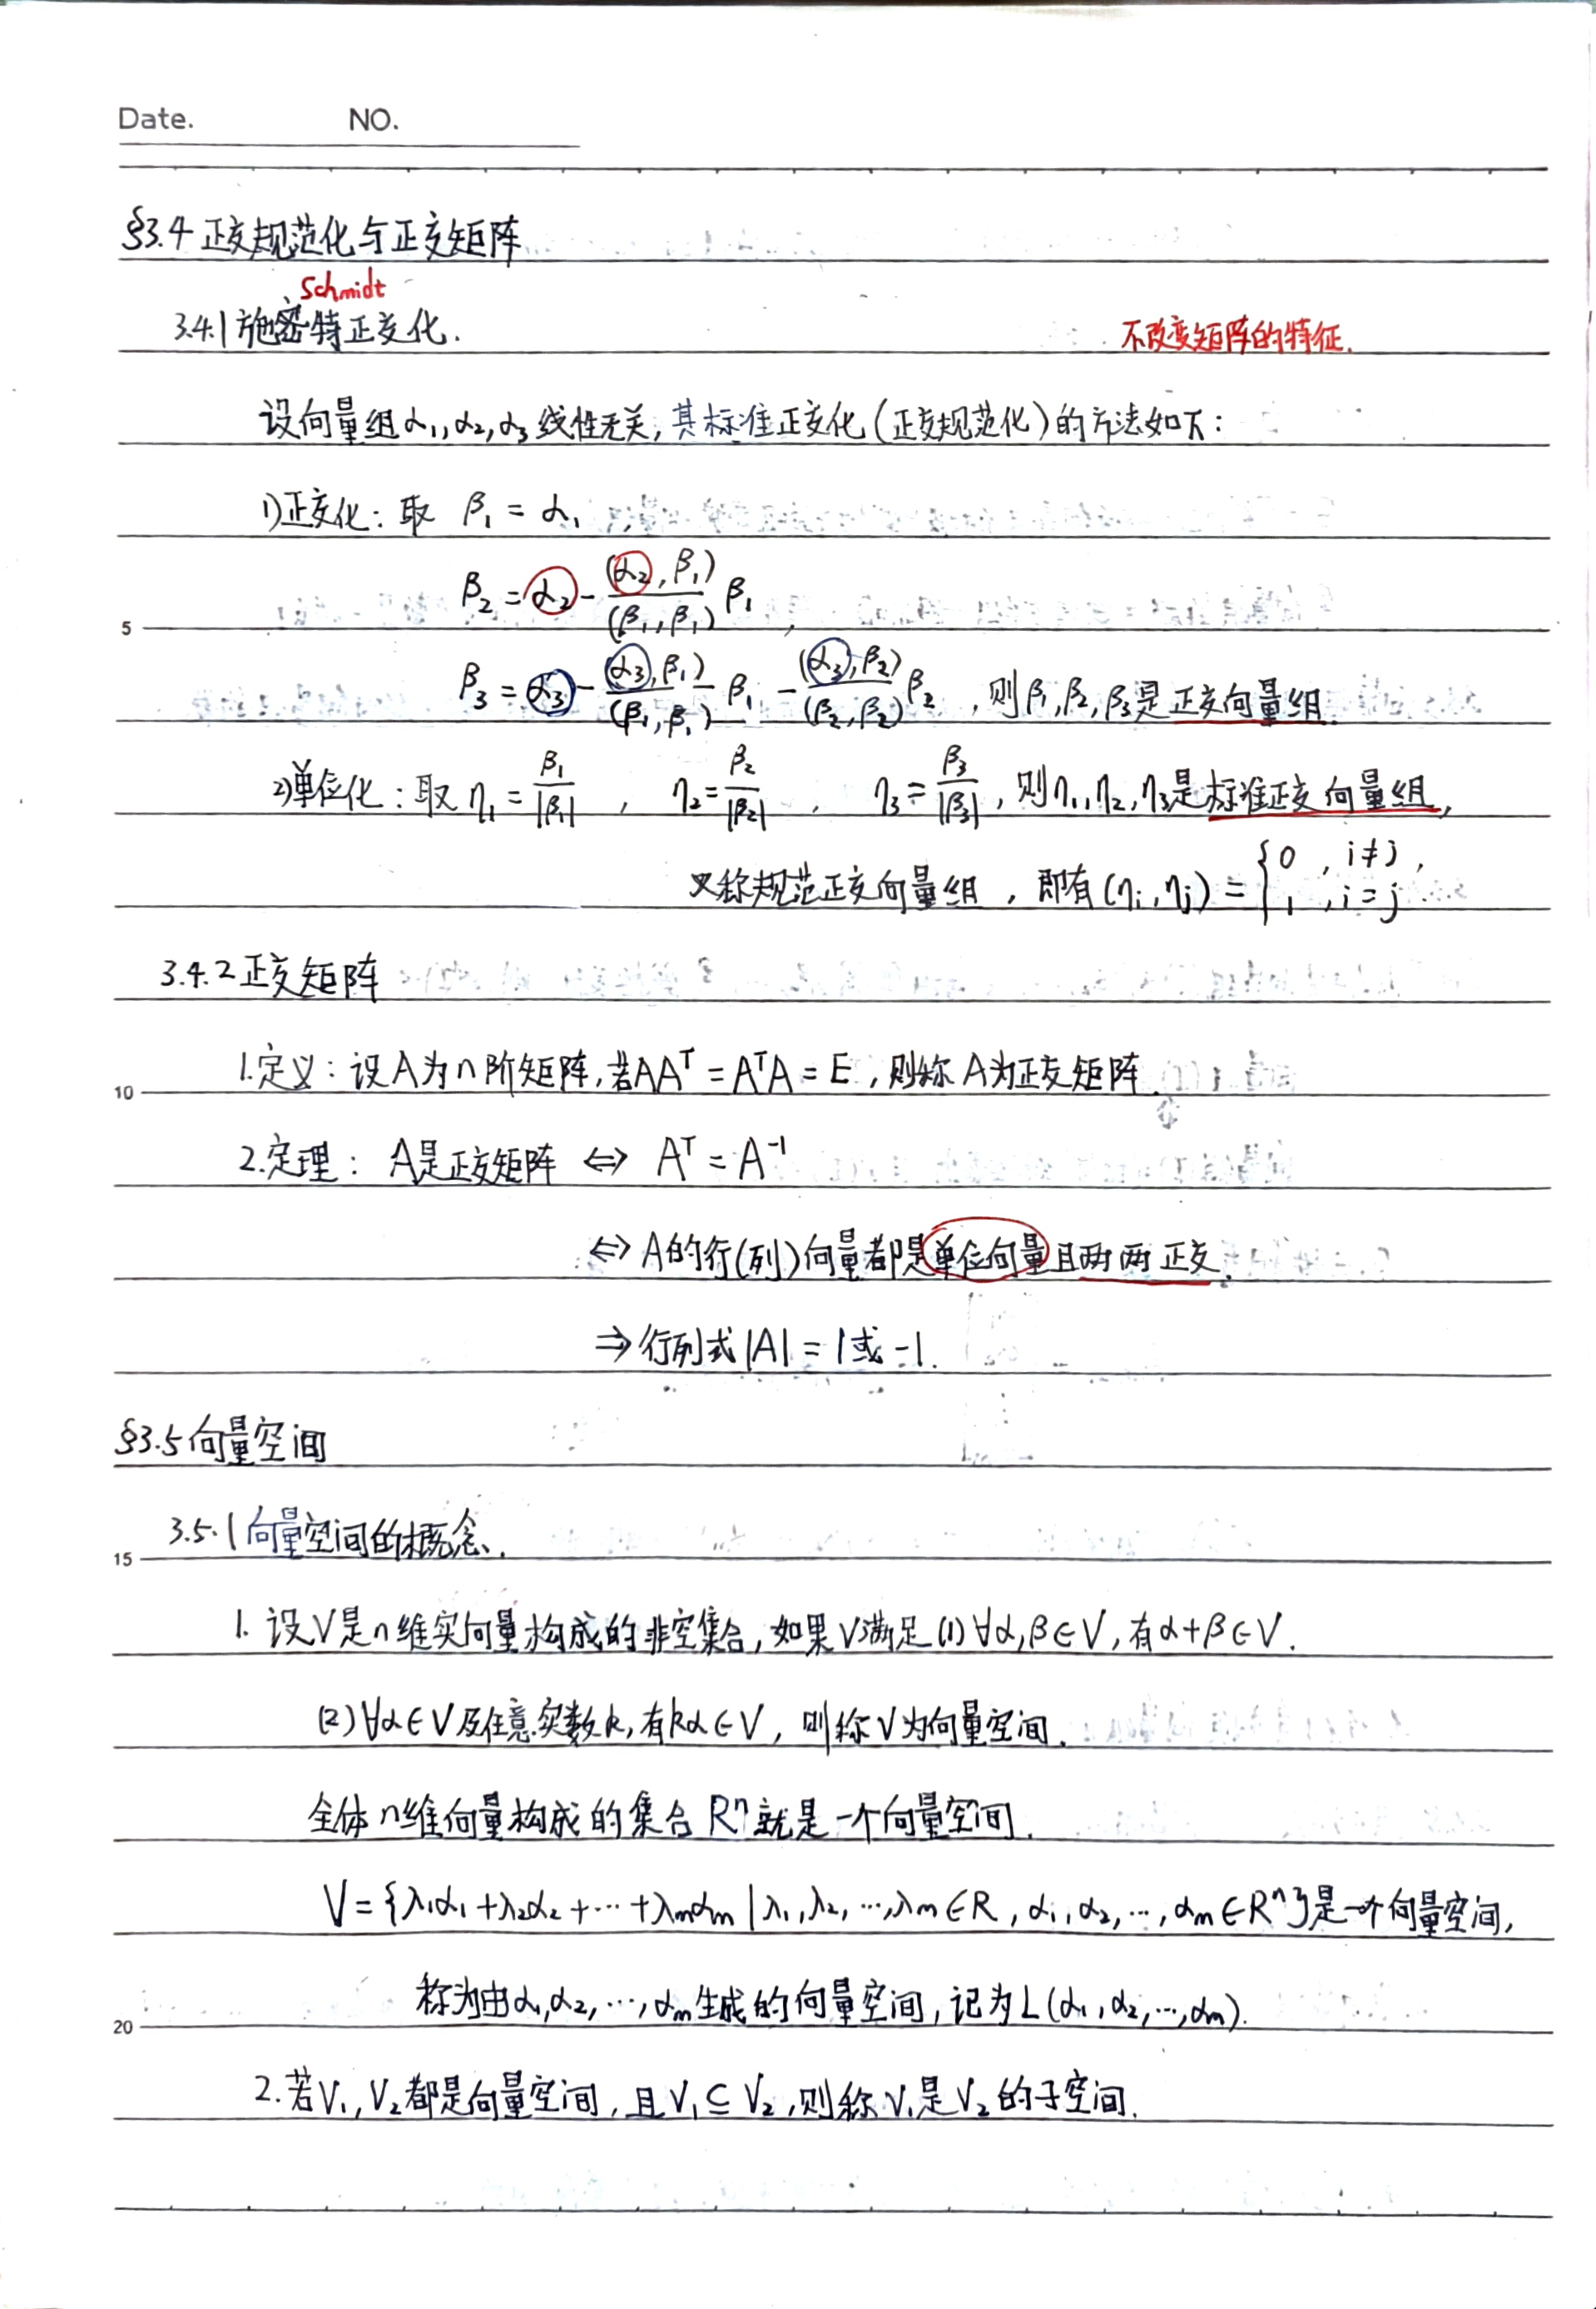 Date. NO.
§3.4 正交规范化与正交矩阵
Schmidt
3.4.1 施密特正交化.
不改变矩阵的特征.
设向量组α₁,α₂,α₃线性无关,其标准正交化(正交规范化)的方法如下:
1)正交化: 取 β₁ = α₁
β₂ = α₂ - (α₂,β₁)/(β₁,β₁) β₁,
5
β₃ = α₃ - (α₃,β₁)/(β₁,β₁) β₁ - (α₃,β₂)/(β₂,β₂) β₂ ,则β₁,β₂,β₃是正交向量组.
2)单位化:取 η₁ = β₁/|β₁| , η₂ = β₂/|β₂| , η₃ = β₃/|β₃| ,则η₁,η₂,η₃是标准正交向量组,
又称规范正交向量组,即有(ηᵢ,ηⱼ) = { 0 , i≠j, 1 , i=j.
3.4.2 正交矩阵
1.定义:设A为n阶矩阵,若AAᵀ = AᵀA = E ,则称A为正交矩阵.
10
2.定理: A是正交矩阵 ⇔ Aᵀ = A⁻¹
⇔ A的行(列)向量都是单位向量且两两正交.
⇒ 行列式|A| = 1或-1.
§3.5 向量空间
3.5.1 向量空间的概念.
15
1. 设V是n维实向量构成的非空集合,如果V满足(1)∀α,β∈V,有α+β∈V.
(2)∀α∈V及任意实数k,有kα∈V,则称V为向量空间.
全体n维向量构成的集合Rⁿ就是一个向量空间.
V = {λ₁α₁+λ₂α₂+…+λₘαₘ | λ₁,λ₂,…,λₘ∈R, α₁,α₂,…,αₘ∈Rⁿ}是一个向量空间,
称为由α₁,α₂,…,αₘ生成的向量空间,记为L(α₁,α₂,…,αₘ).
20
2.若V₁,V₂都是向量空间,且V₁⊆V₂,则称V₁是V₂的子空间.